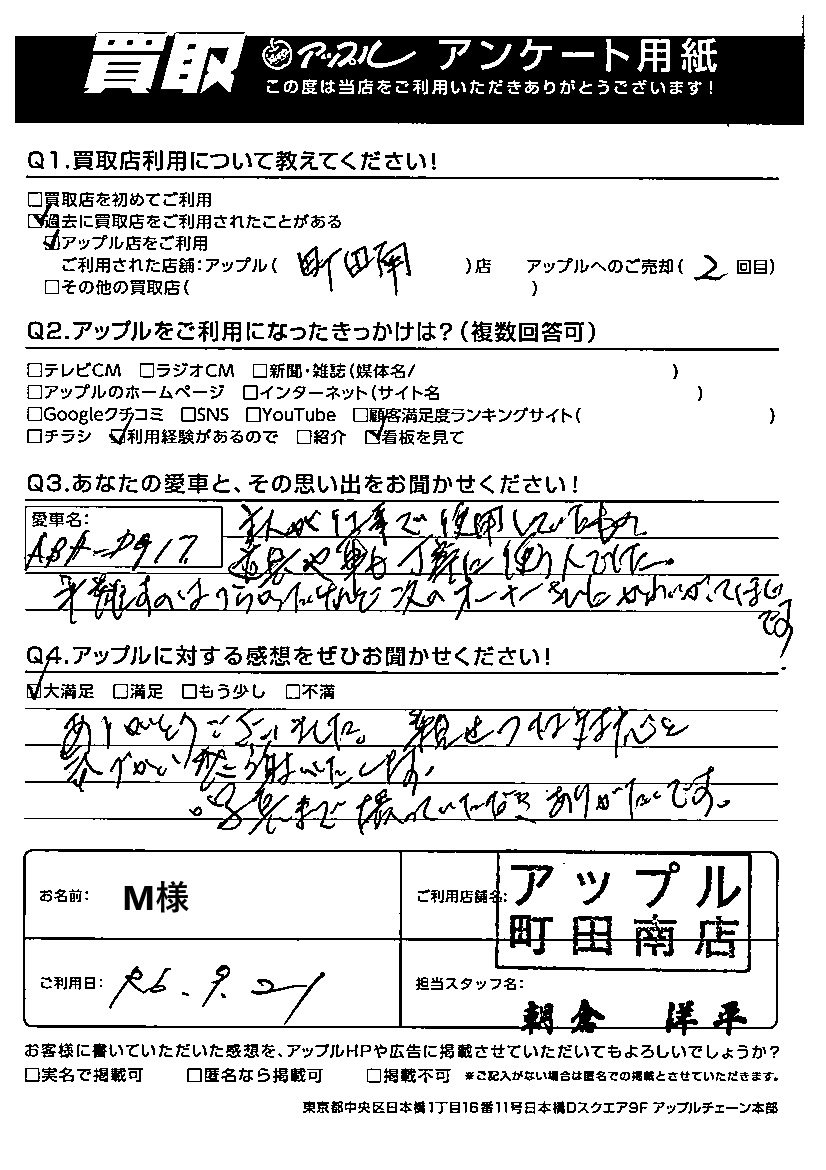 買取 アップル アンケート用紙
この度は当店をご利用いただきありがとうございます!
Q1.買取店利用について教えてください!
□買取店を初めてご利用
☑過去に買取店をご利用されたことがある
☑アップル店をご利用
ご利用された店舗:アップル( 町田南 )店 アップルへのご売却( 2 回目)
□その他の買取店( )
Q2.アップルをご利用になったきっかけは?(複数回答可)
□テレビCM □ラジオCM □新聞・雑誌(媒体名/ )
□アップルのホームページ □インターネット(サイト名 )
□Googleクチコミ □SNS □YouTube □顧客満足度ランキングサイト( )
□チラシ ☑利用経験があるので □紹介 ☑看板を見て
Q3.あなたの愛車と、その思い出をお聞かせください!
愛車名:
ABA-D917
主人が仕事で使用していたもの
車も丁寧に使う人でした。
手離すのはつらかったけれど次のオーナーさんにかわいがってほしい
です
Q4.アップルに対する感想をぜひお聞かせください!
☑大満足 □満足 □もう少し □不満
ありがとうございました。親せつな対応を
感謝いたします。
写真まで撮っていただきありがたいです。
お名前: M様 ご利用店舗名: アップル
町田南店
ご利用日: R6.9.21 担当スタッフ名:
朝倉 洋平
お客様に書いていただいた感想を、アップルHPや広告に掲載させていただいてもよろしいでしょうか?
□実名で掲載可 □匿名なら掲載可 □掲載不可 ※ご記入がない場合は匿名での掲載とさせていただきます。
東京都中央区日本橋1丁目16番11号日本橋Dスクエア9F アップルチェーン本部